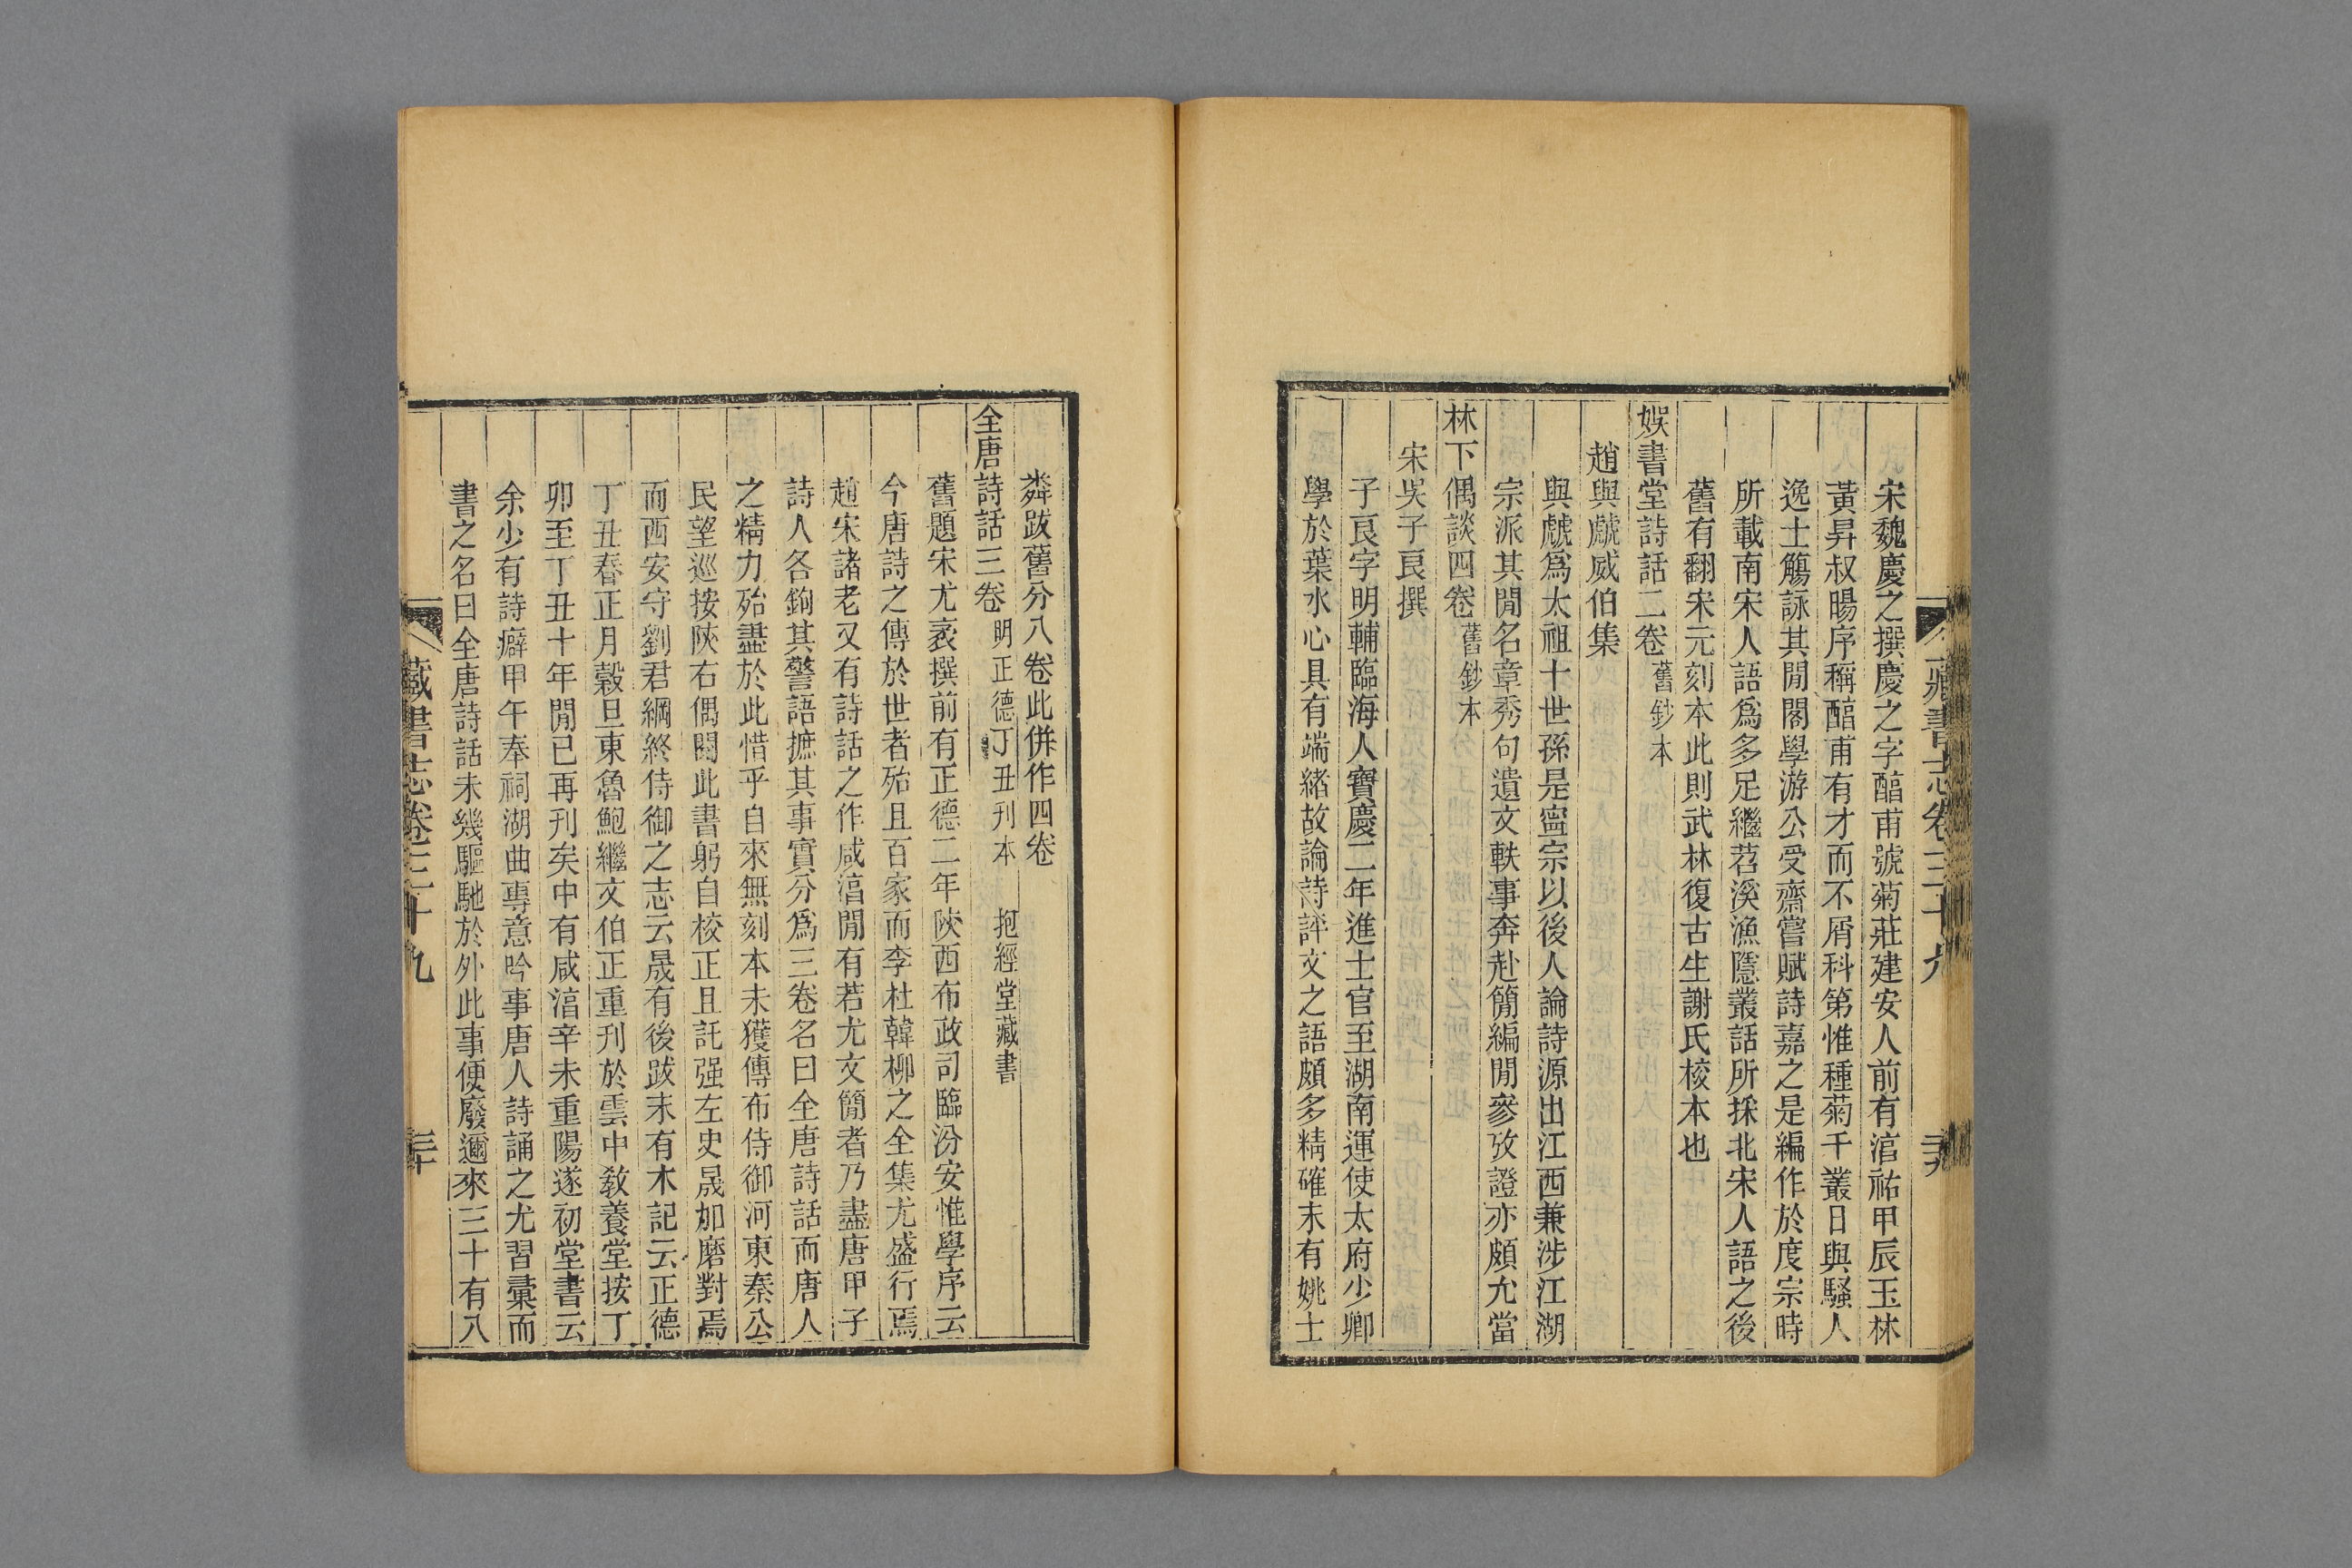 藏書志卷三十九
宋魏慶之撰慶之字醕甫號菊莊建安人前有湻祐甲辰玉林
黃昇叔暘序稱醕甫有才而不屑科第惟種菊千叢日與騷人
逸士觴詠其閒閣學游公受齋嘗賦詩嘉之是編作於度宗時
所載南宋人語爲多足繼苕溪漁隱叢話所採北宋人語之後
舊有翻宋元刻本此則武林復古生謝氏校本也
娛書堂詩話二卷舊鈔本
趙與虤威伯集
與虤爲太祖十世孫是寍宗以後人論詩源出江西兼涉江湖
宗派其閒名章秀句遺文軼事奔赴簡編閒參攷證亦頗允當
林下偶談四卷舊鈔本
宋吳子良撰
子良字明輔臨海人寶慶二年進士官至湖南運使太府少卿
學於葉水心具有端緒故論詩評文之語頗多精確末有姚士
粦跋舊分八卷此併作四卷
全唐詩話三卷明正德丁丑刊本 抱經堂藏書
舊題宋尤袤撰前有正德二年陝西布政司臨汾安惟學序云
今唐詩之傳於世者殆且百家而李杜韓柳之全集尤盛行焉
趙宋諸老又有詩話之作咸湻閒有若尤文簡者乃盡唐甲子
詩人各鉤其警語摭其事實分爲三卷名曰全唐詩話而唐人
之精力殆盡於此惜乎自來無刻本未獲傳布侍御河東秦公
民望巡按陝右偶閱此書躬自校正且託强左史晟加磨對焉
而西安守劉君綱終侍御之志云晟有後跋末有木記云正德
丁丑春正月穀旦東魯鮑繼文伯正重刊於雲中敎養堂按丁
卯至丁丑十年閒已再刊矣中有咸湻辛未重陽遂初堂書云
余少有詩癖甲午奉祠湖曲專意吟事唐人詩誦之尤習彙而
書之名曰全唐詩話未幾驅馳於外此事便廢邇來三十有八
藏書志卷三十九
三十